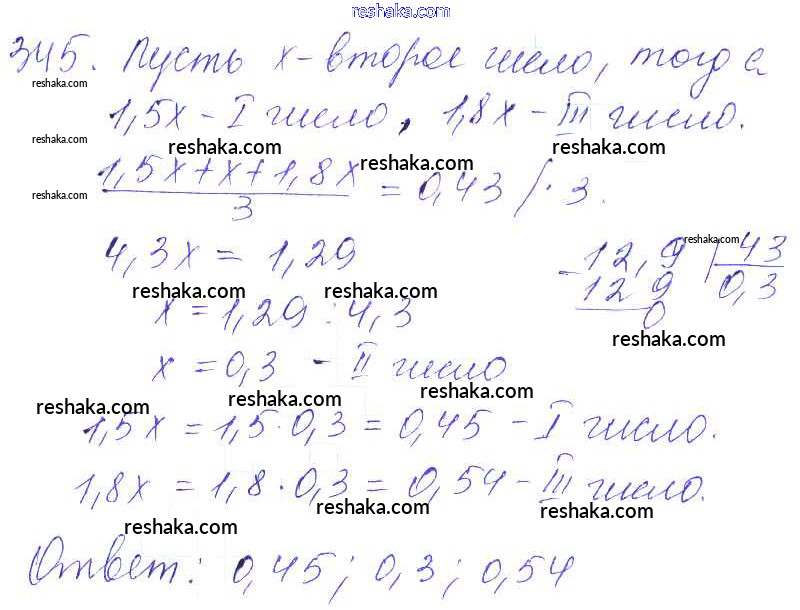 reshaka.com
345. Пусть x - второе число, тогда
reshaka.com
1,5x - I число, 1,8x - III число.
reshaka.com reshaka.com reshaka.com
reshaka.com reshaka.com
(1,5x+x+1,8x)/3 = 0,43 /· 3.
reshaka.com
4,3x = 1,29
-12,9 | 43
129 0,3
0
reshaka.com reshaka.com reshaka.com
x = 1,29 : 4,3
reshaka.com
x = 0,3 - II число
reshaka.com reshaka.com
1,5x = 1,5·0,3 = 0,45 - I число.
reshaka.com reshaka.com
1,8x = 1,8·0,3 = 0,54 - III число.
reshaka.com reshaka.com reshaka.com
Ответ: 0,45; 0,3; 0,54